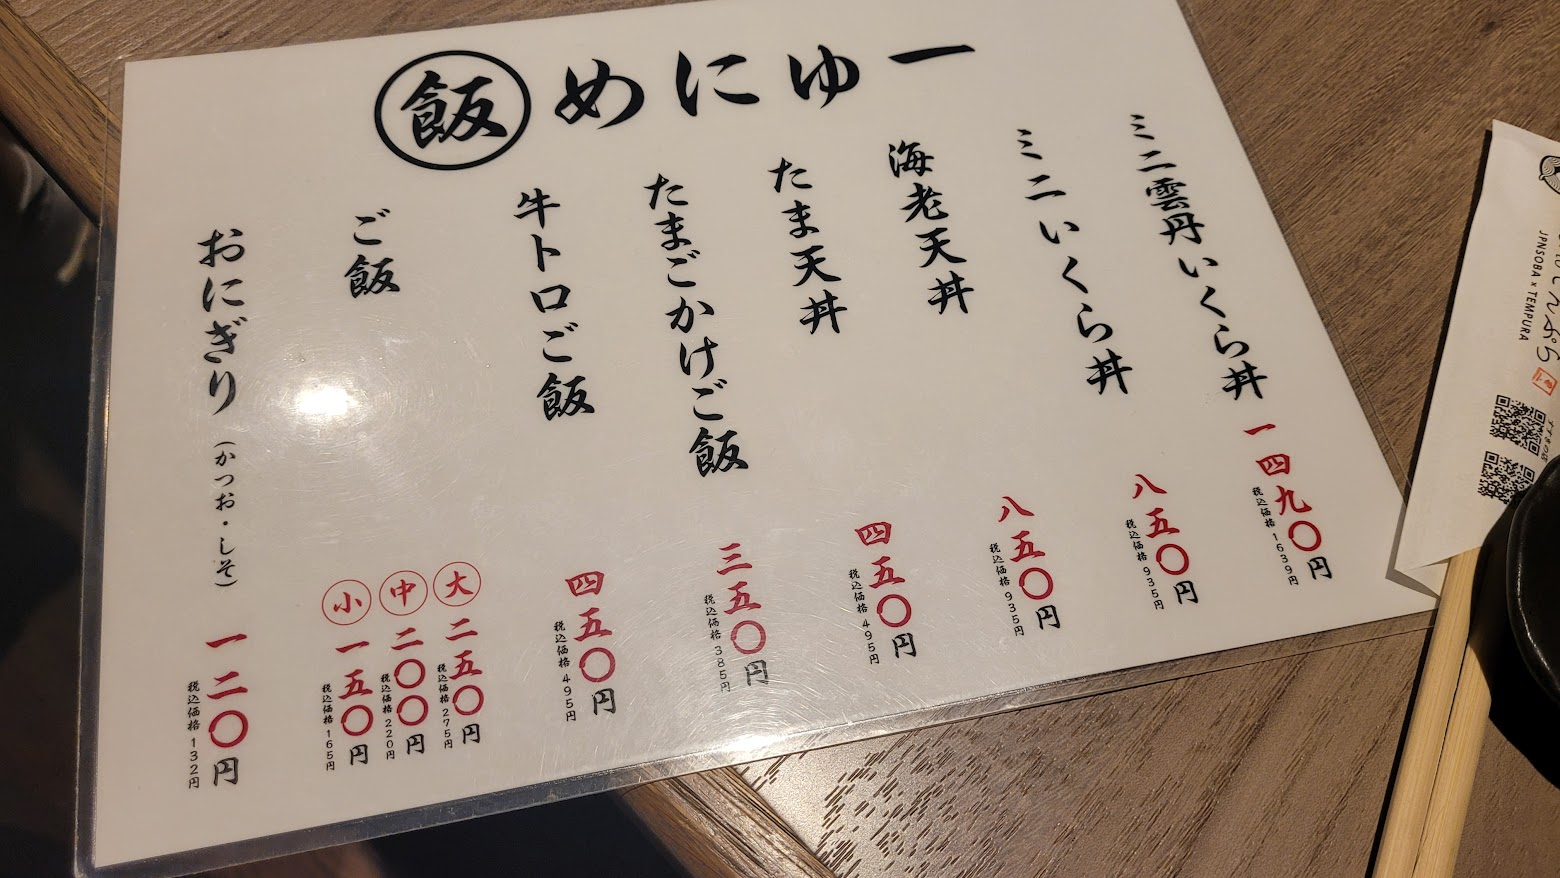 飯 めにゅー
ミニ雲丹いくら丼
一四九〇円
税込価格 1639円
ミニいくら丼
八五〇円
税込価格 935円
海老天丼
八五〇円
税込価格 935円
たま天丼
四五〇円
税込価格 495円
たまごかけご飯
三五〇円
税込価格 385円
牛トロご飯
四五〇円
税込価格 495円
ご飯
大 二五〇円
税込価格 275円
中 二〇〇円
税込価格 220円
小 一五〇円
税込価格 165円
おにぎり (かつお・しそ)
一二〇円
税込価格 132円
JPNSOBA × TEMPURA